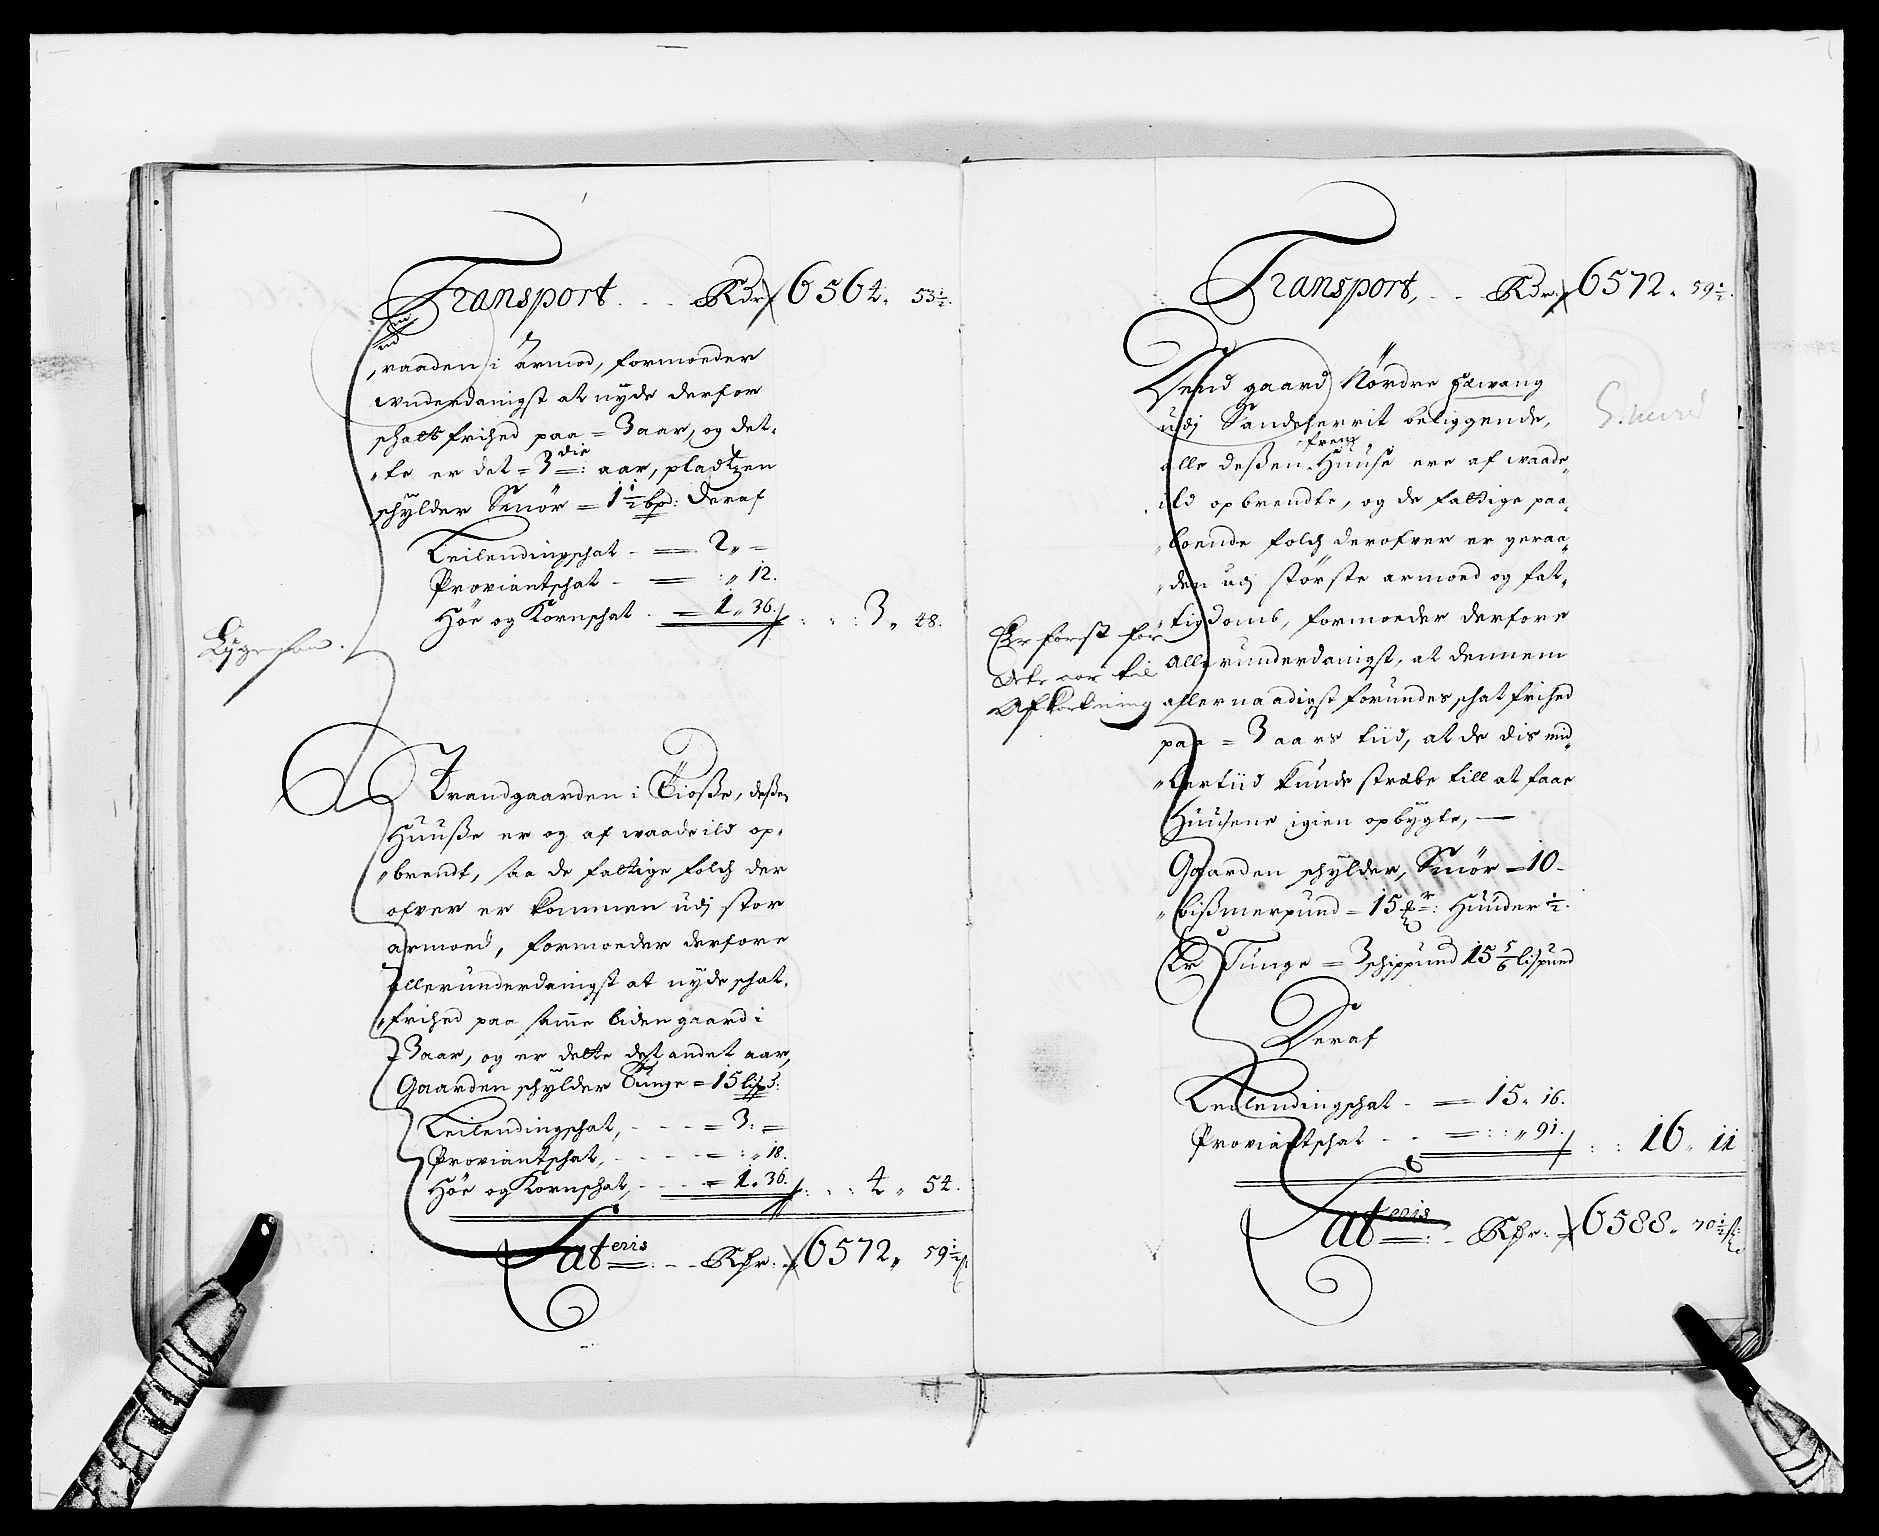 Transport. - - Rdr 6564„ 53½.
raaden i armod, formoeder
wnderdanigst at nyde derfor
schatt frihed paa = 3 aar, og det„
„te er det = 3die: aar, pladtzen
schylder Smör = 1½ bp: Deraf
Leilendingschat - = 2„ =
Proviantschat - = :„ 12.
Höe og Kornschat - = 1„ 36. : : 3„ 48.
Ligesom.
Strandgaarden i Tioße, deßen
Huuße er og af waade ild op„
„brendt, saa de fattige folch der
ofver er kommen udj stor
armoed, formoeder derfore
allerunderdanigst at nyde schat„
„frihed paa samme liden gaard i
3 aar, og er dette det andet aar,
Gaarden schylder Tunge = 15 lispd:
Leilendingschat, - - - = 3: =
Proviantschat, - - - = :„ 18.
Höe og Kornschat, - - = 1„ 36. : : 4„ 54.
Lateris - - Rdr: 6572„ 59½ s
Transport, - - Rdr: 6572„ 59½.
Dend gaard Nordre
udj Sandeherrit beliggende,
alle deßen Huuse ere af waade„
ild opbrendte, og de fattige paa„
„boende folch derofver er geraa„
„den udj störste armoed og fat„
„tigdomb, formoeder derfore
allerunderdanigst, at dennem
Er först for
dette aar til
Afkortning
allernaadigst forundes schat frihed
paa = 3 aars tiid, at de dis mid„
„lertiid kunde stræbe till at faae
Huusene igien opbygte, —
Gaarden schylder, Smör = 10
„bißmerpund = 15 Huuder ½.
Er Tunge = 3 schippund 15 5/6 lispund
Deraf
Leilendingschat - = 15„ 16.
Proviantschat - - = : :„ 91. : : 16„ 11
Lateris - Rdr: 6588„ 70½ s